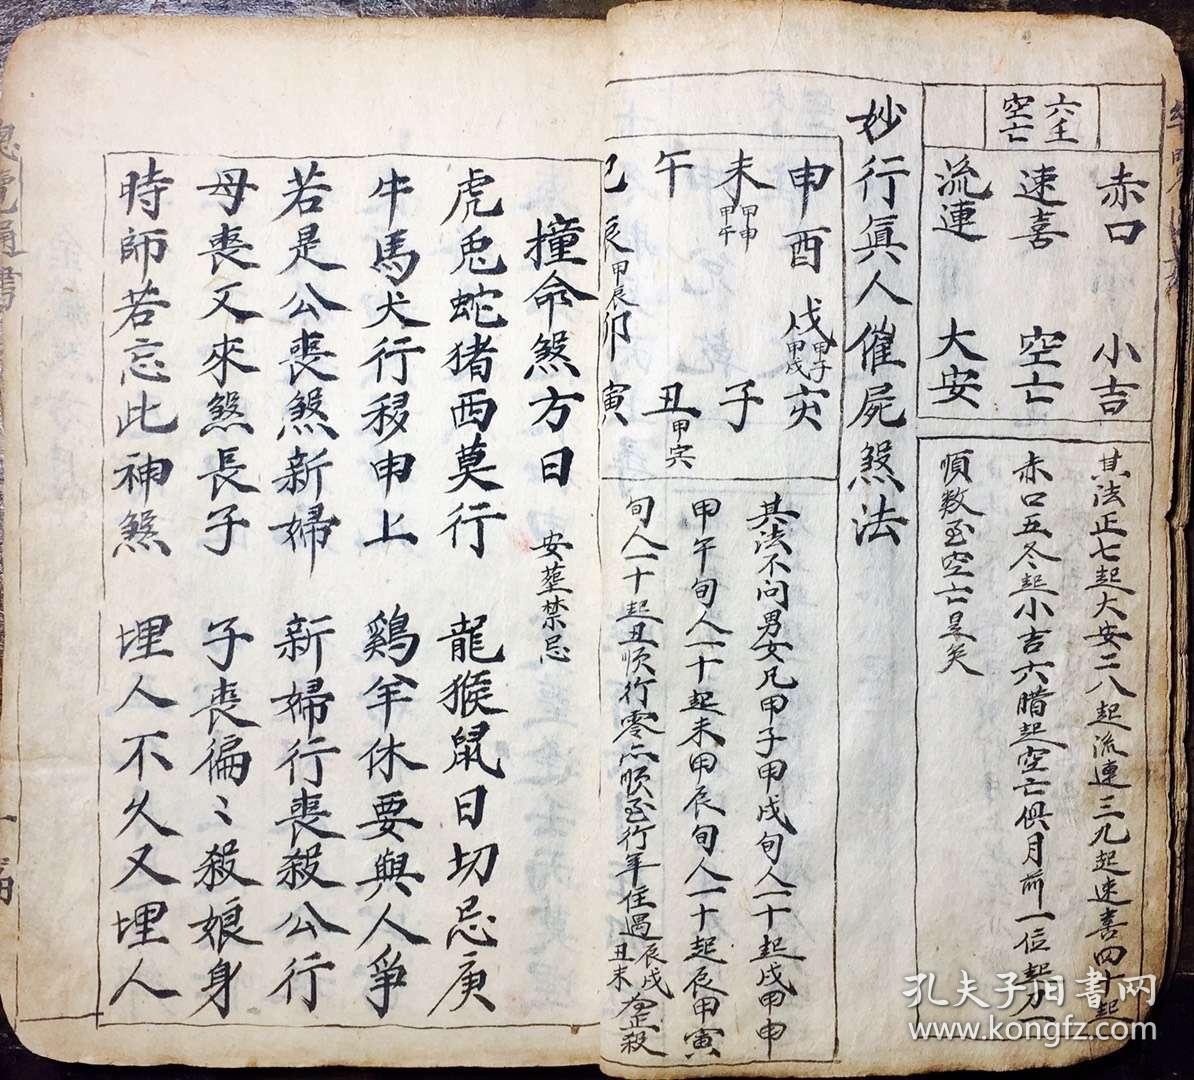 六壬
空亡
赤口 小吉
速喜 空亡
流連 大安
其法正七起大安二八起流連三九起速喜四十起
赤口五冬起小吉六腊起空亡俱月前一位起初一
順数至空亡是矣
妙行真人催屍煞法
申酉戌甲子甲戌亥
未甲申甲午 子
午 丑甲寅
巳辰甲辰卯 寅
其法不问男女凡甲子甲戌旬人一十起戌甲申
甲午旬人一十起未甲辰旬人一十起辰甲寅
旬人一十起丑順行零亦順至行年住遇辰戌丑未為正殺
撞命煞方日 安塟禁忌
虎兎蛇猪西莫行 龍猴鼠日切忌庚
牛馬犬行移申上 鷄羊休要與人爭
若是公喪煞新婦 新婦行喪殺公行
母喪又來煞長子 子喪徧〻殺娘身
時師若忘此神煞 埋人不久又埋人
總覽通書
孔夫子旧书网
www.kongfz.com